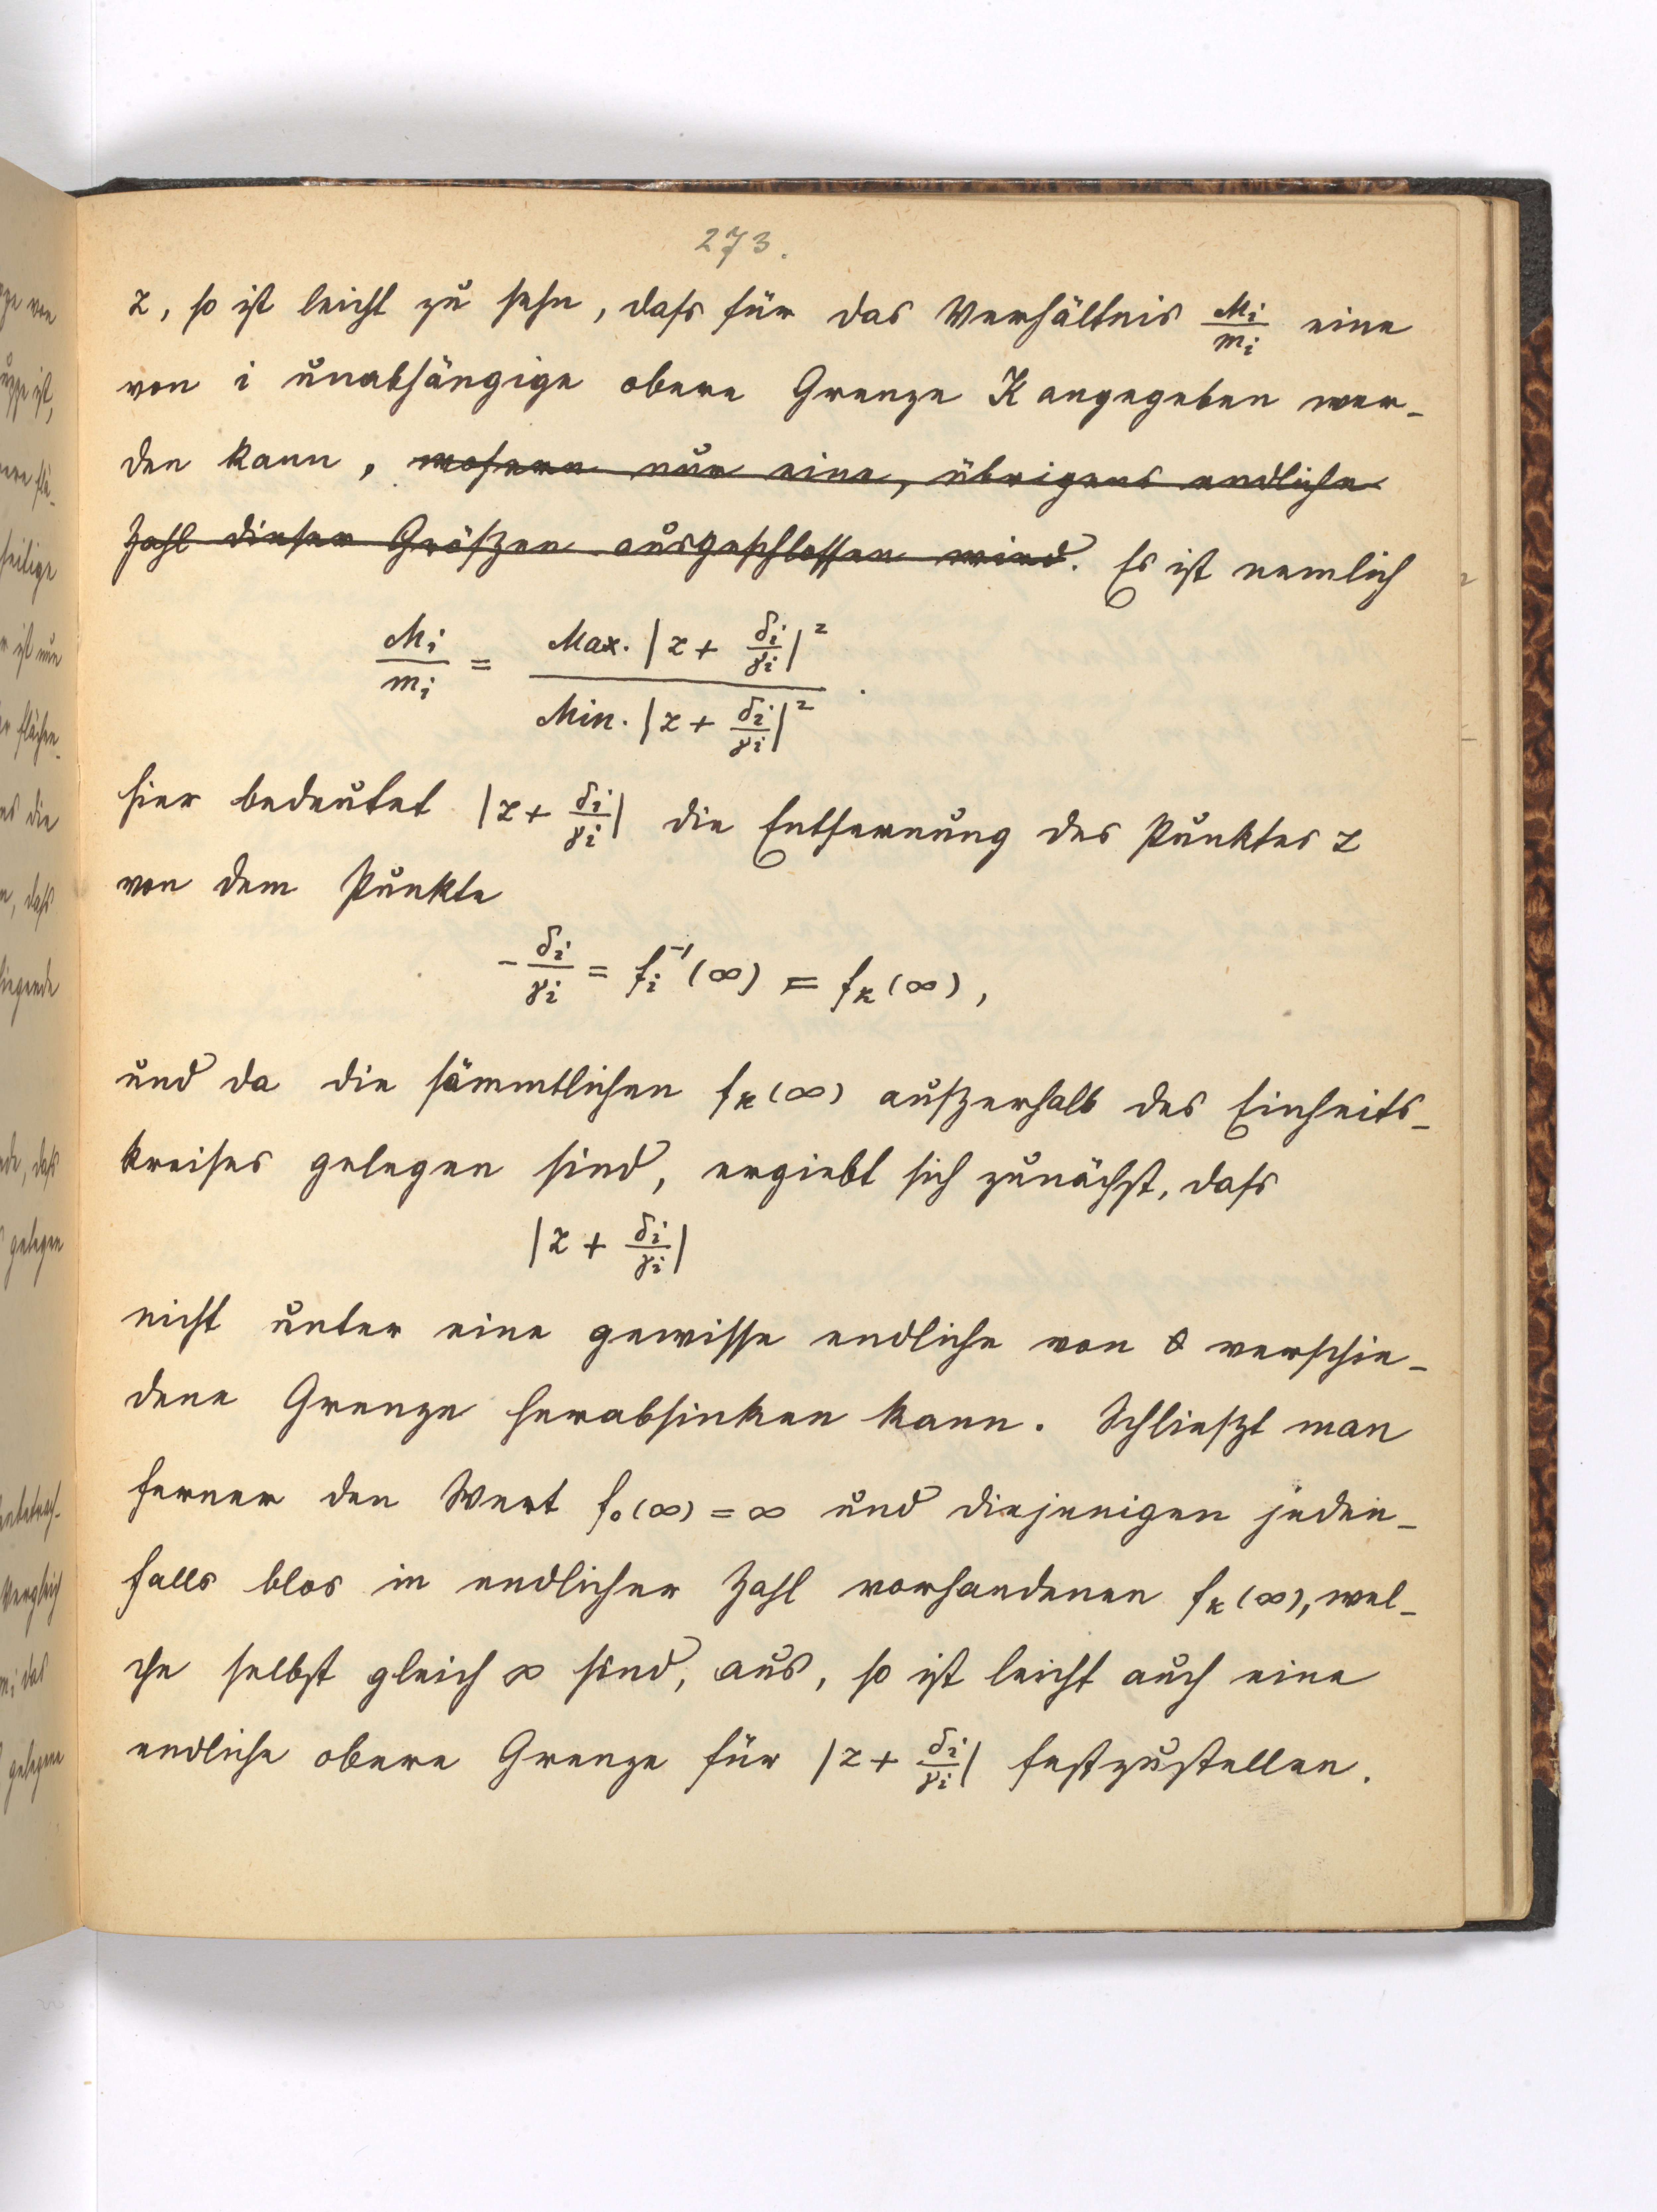 273.
z, so ist leicht zu sehn, dafs für das Verhältnis M_i/m_i eine
von i unabhängige obere Grenze K angegeben wer-
den kann, wofern nur eine, übrigens endliche
Zahl dieser Gröfzen ausgeschlossen wird. Es ist nemlich
M_i/m_i = Max. |z + δ_i/γ_i|² / Min. |z + δ_i/γ_i|² .
hier bedeutet |z + δ_i/γ_i| die Entfernung des Punktes z
von dem Punkte
-δ_i/γ_i = f_i^{-1}(∞) = f_k(∞),
und da die sämmtlichen f_k(∞) aufzerhalb des Einheits-
kreises gelegen sind, ergiebt sich zunächst, dafs
|z + δ_i/γ_i|
nicht unter eine gewisse endliche von 0 verschie-
dene Grenze herabsinken kann. Schliefzt man
ferner den Wert f_0(∞) = ∞ und diejenigen jeden-
falls blos in endlicher Zahl vorhandenen f_k(∞), wel-
che selbst gleich ∞ sind, aus, so ist leicht auch eine
endliche obere Grenze für |z + δ_i/γ_i| festzustellen.